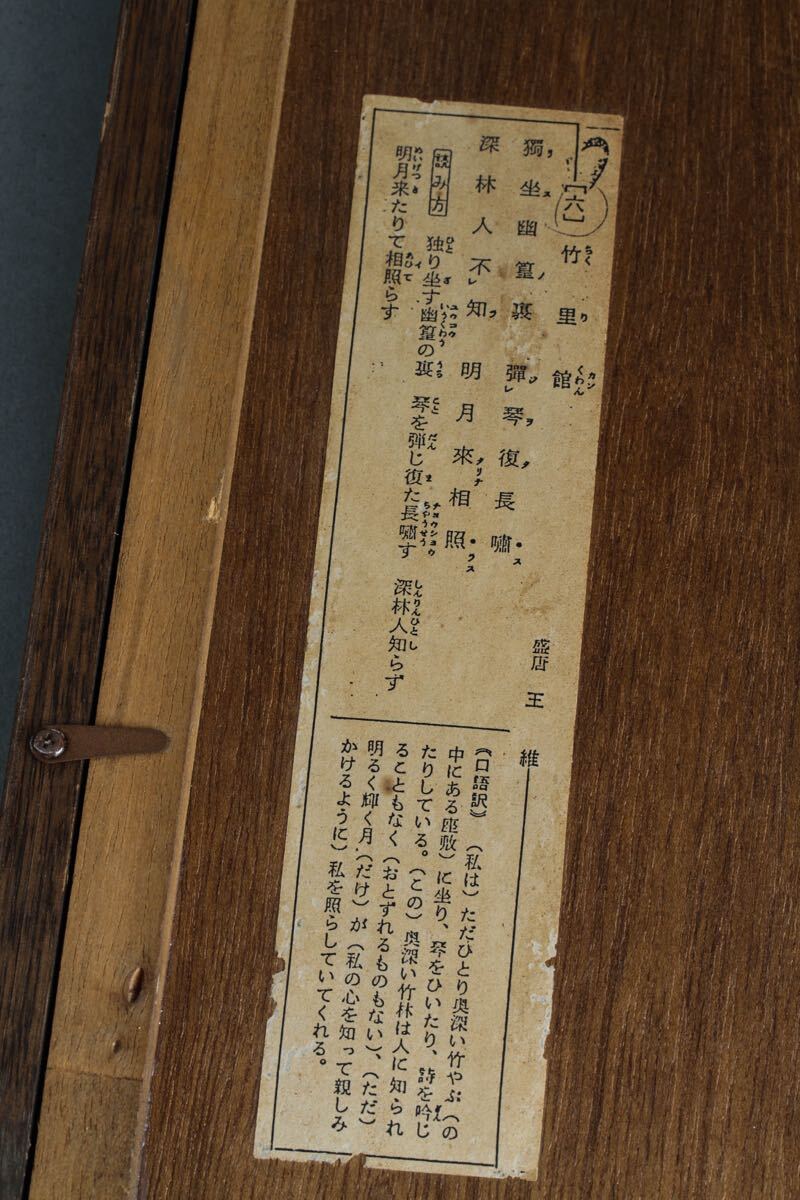 ［六］竹里館 盛唐 王維
獨坐幽篁裏 彈レ琴復長嘯
深林人不レ知 明月來相照
読み方 独り坐す幽篁の裏 琴を弾じ復た長嘯す 深林人知らず
明月来たりて相照らす
《口語訳》（私は）ただひとり奥深い竹やぶ（の
中にある座敷）に坐り、琴をひいたり、詩を吟じ
たりしている。（この）奥深い竹林は人に知られ
ることもなく（おとずれるものもない）、（ただ）
明るく輝く月（だけ）が（私の心を知って親しみ
かけるように）私を照らしていてくれる。